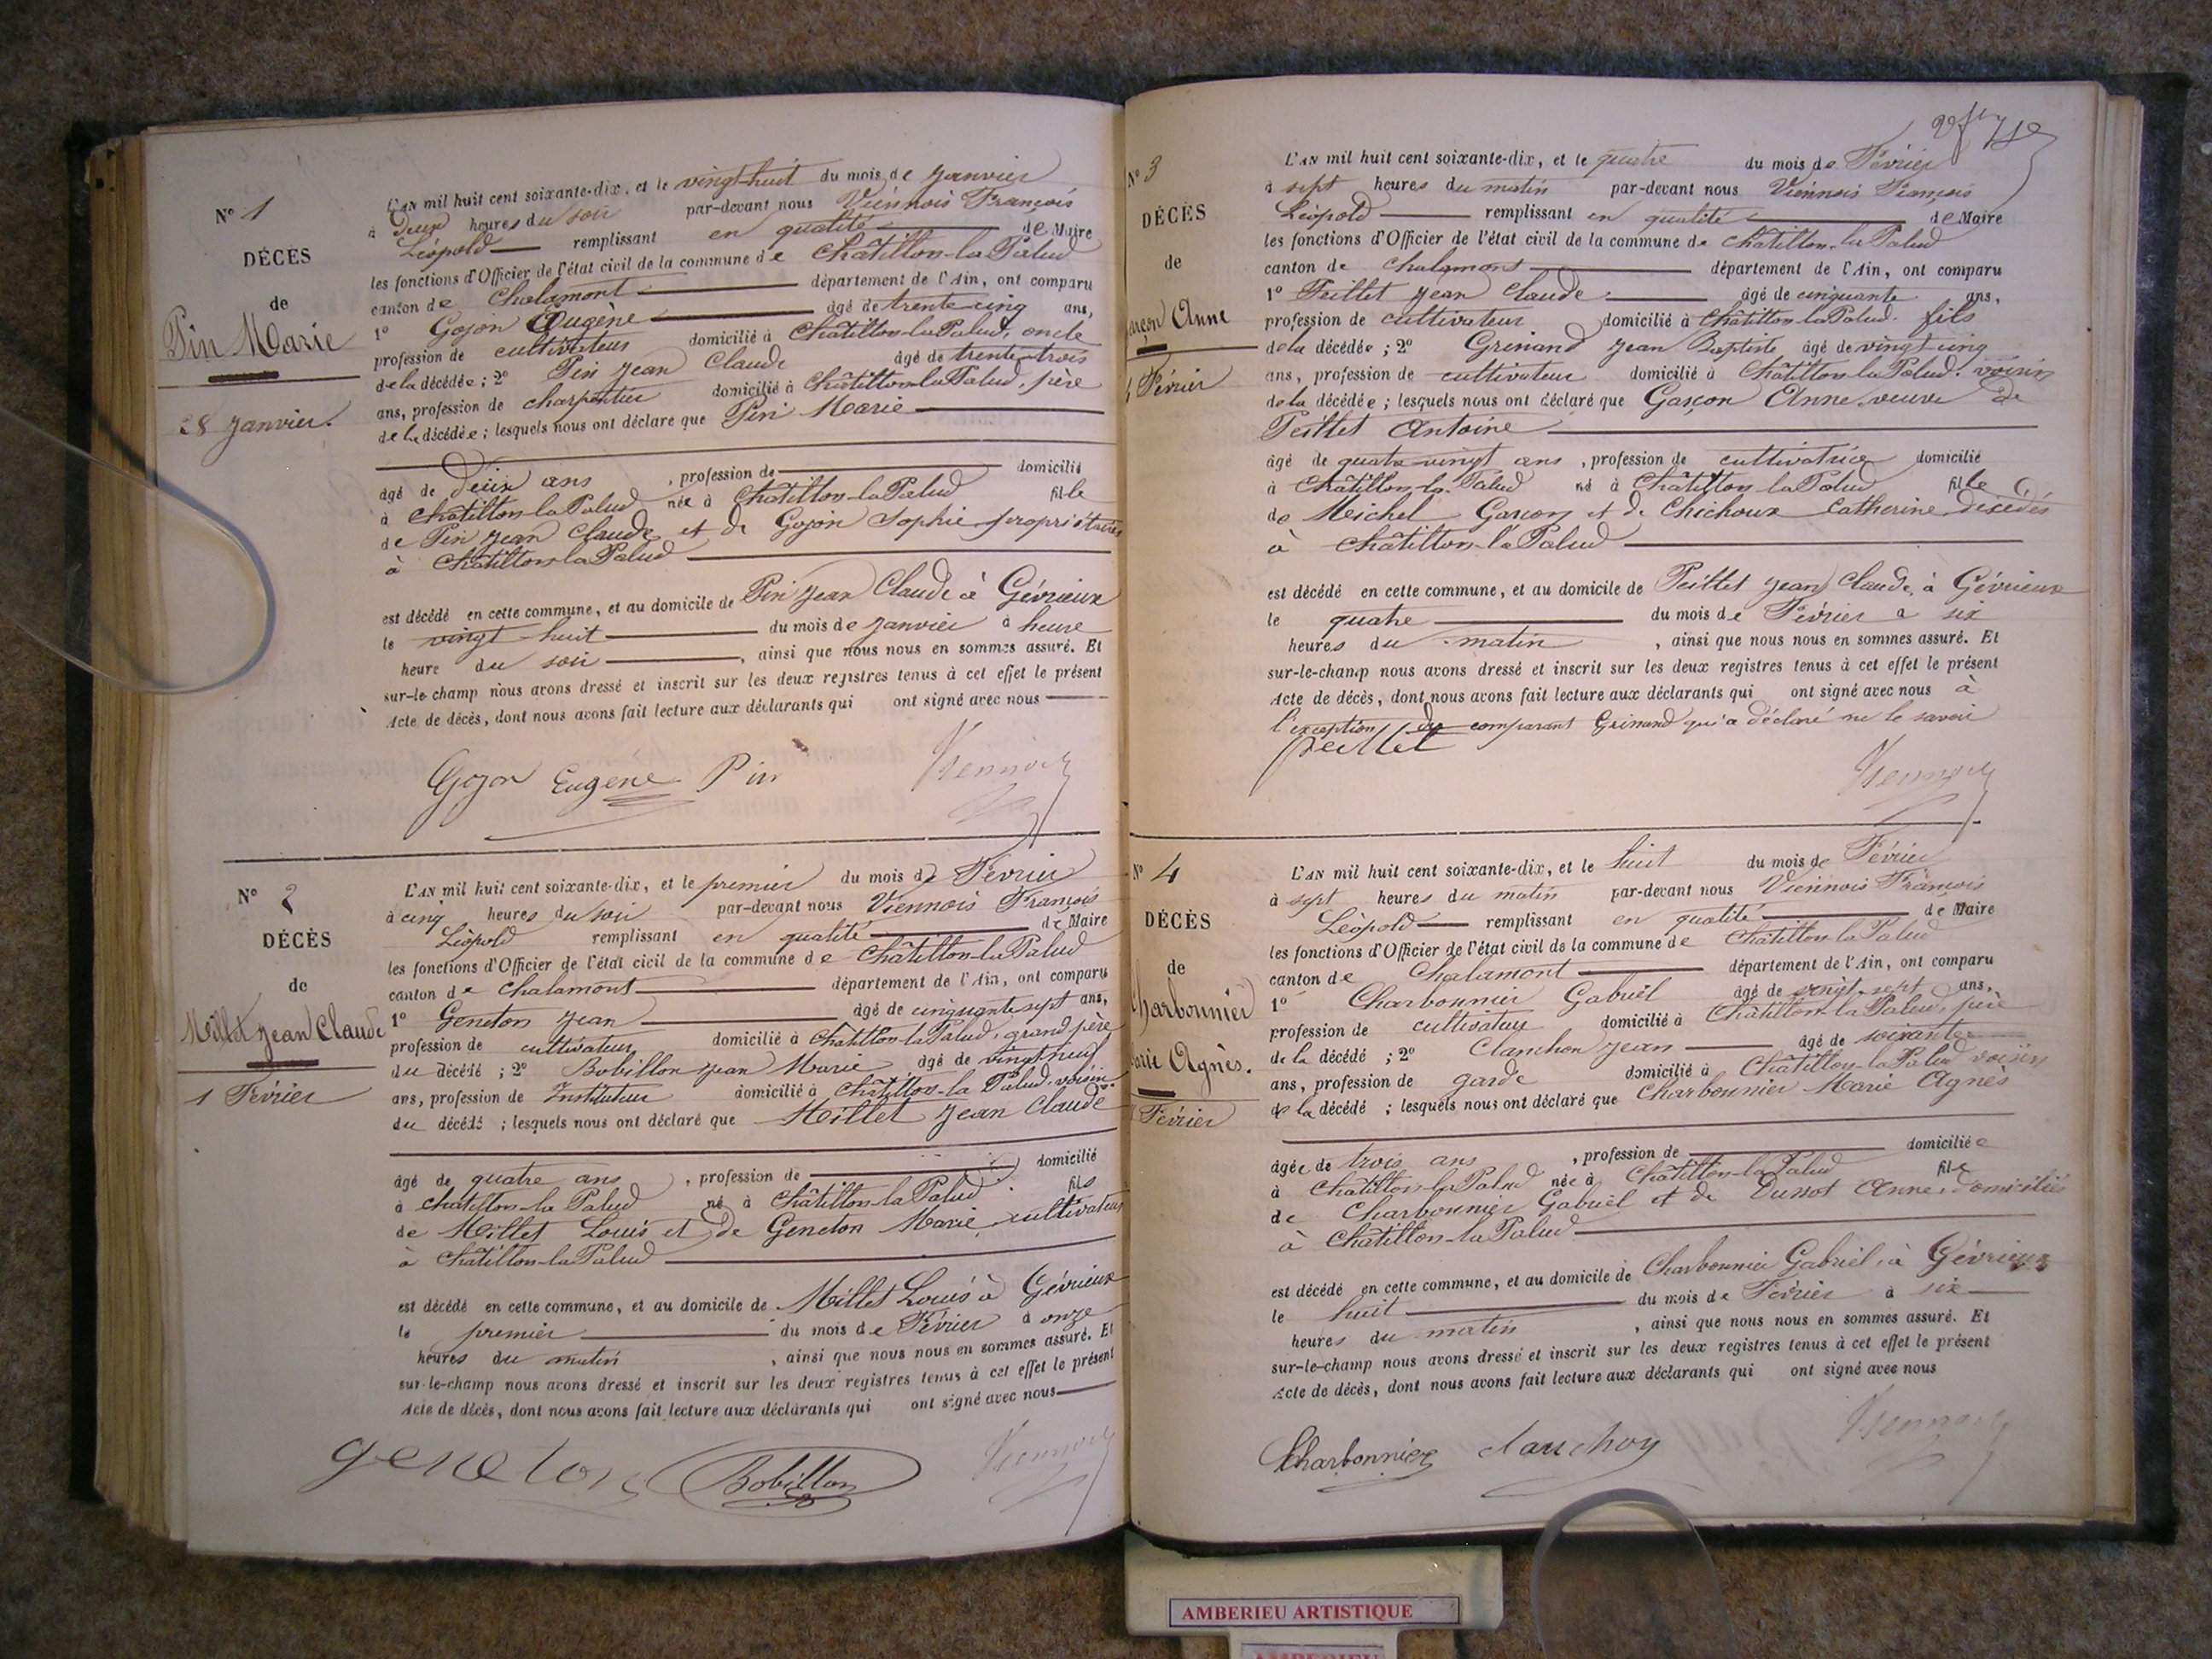 N° 1
DÉCÈS
de
Pin Marie
28 Janvier.
L'AN mil huit cent soixante-dix, et le vingt-huit du mois de Janvier
à Deux heures du soir par-devant nous Viennois François
Léopold remplissant en qualité de Maire
les fonctions d'Officier de l'état civil de la commune de Châtillon-la-Palud
canton de Chalamont département de l'Ain, ont comparu
1° Gojon Eugène âgé de trente-cinq ans,
profession de cultivateur domicilié à Châtillon-la-Palud, oncle
de la décédée ; 2° Pin Jean Claude âgé de trente-trois
ans, profession de charpentier domicilié à Châtillon-la-Palud, père
de la décédée ; lesquels nous ont déclaré que Pin Marie
âgé de Deux ans , profession de domicilié
à Châtillon-la-Palud née à Châtillon-la-Palud fille
de Pin Jean Claude et de Gojon Sophie propriétaires
à Châtillon-la-Palud
est décédé en cette commune, et au domicile de Pin Jean Claude à Gévrieux
le vingt-huit du mois de Janvier à heure
heure du soir , ainsi que nous nous en sommes assuré. Et
sur-le-champ nous avons dressé et inscrit sur les deux registres tenus à cet effet le présent
Acte de décès, dont nous avons fait lecture aux déclarants qui ont signé avec nous
Gojon Eugène Pin Viennois
N° 2
DÉCÈS
de
Millet Jean Claude
1 Février
L'AN mil huit cent soixante-dix, et le premier du mois de Février
à cinq heures du soir par-devant nous Viennois François
Léopold remplissant en qualité de Maire
les fonctions d'Officier de l'état civil de la commune de Châtillon-la-Palud
canton de Chalamont département de l'Ain, ont comparu
1° Geneton Jean âgé de cinquante-sept ans,
profession de cultivateur domicilié à Châtillon-la-Palud, grand père
du décédé ; 2° Bobillon Jean Marie âgé de vingt neuf
ans, profession de Instituteur domicilié à Châtillon-la-Palud, voisin
du décédé ; lesquels nous ont déclaré que Millet Jean Claude
âgé de quatre ans , profession de domicilié
à Châtillon-la-Palud né à Châtillon-la-Palud fils
de Millet Louis et de Geneton Marie, cultivateurs
à Châtillon-la-Palud
est décédé en cette commune, et au domicile de Millet Louis à Gévrieux
le premier du mois de Février à onze
heures du matin , ainsi que nous nous en sommes assuré. Et
sur-le-champ nous avons dressé et inscrit sur les deux registres tenus à cet effet le présent
Acte de décès, dont nous avons fait lecture aux déclarants qui ont signé avec nous
geneton Bobillon Viennois
N° 3
DÉCÈS
de
Garçon Anne
4 Février
L'AN mil huit cent soixante-dix, et le quatre du mois de Février
à sept heures du matin par-devant nous Viennois François
Léopold remplissant en qualité de Maire
les fonctions d'Officier de l'état civil de la commune de Châtillon-la-Palud
canton de Chalamont département de l'Ain, ont comparu
1° Peillet Jean Claude âgé de cinquante ans,
profession de cultivateur domicilié à Châtillon-la-Palud. fils
de la décédée ; 2° Grinand Jean Baptiste âgé de vingt-cinq
ans, profession de cultivateur domicilié à Châtillon-la-Palud. voisin
de la décédée ; lesquels nous ont déclaré que Garçon Anne veuve de
Peillet Antoine
âgé de quatre-vingt ans , profession de cultivatrice domicilié
à Châtillon-la-Palud né à Châtillon-la-Palud fille
de Michel Garçon et de Chichoux Catherine décédés
à Châtillon-la-Palud
est décédé en cette commune, et au domicile de Peillet Jean Claude, à Gévrieux
le quatre du mois de Février à six
heures du matin , ainsi que nous nous en sommes assuré. Et
sur-le-champ nous avons dressé et inscrit sur les deux registres tenus à cet effet le présent
Acte de décès, dont nous avons fait lecture aux déclarants qui ont signé avec nous à
l'exception du comparant Grinand qui a déclaré ne le savoir
peillet
Viennois
N° 4
DÉCÈS
de
Charbonnier
Marie Agnès.
Février
L'AN mil huit cent soixante-dix, et le huit du mois de Février
à sept heures du matin par-devant nous Viennois François
Léopold remplissant en qualité de Maire
les fonctions d'Officier de l'état civil de la commune de Châtillon-la-Palud
canton de Chalamont département de l'Ain, ont comparu
1° Charbonnier Gabriel âgé de vingt-sept ans,
profession de cultivateur domicilié à Châtillon-la-Palud, père
de la décédé ; 2° Clanchon Jean âgé de soixante
ans, profession de garde domicilié à Châtillon-la-Palud voisin
de la décédé ; lesquels nous ont déclaré que Charbonnier Marie Agnès
âgée de trois ans , profession de domiciliée
à Châtillon-la-Palud née à Châtillon-la-Palud fille
de Charbonnier Gabriel et de Dussot Anne, domiciliés
à Châtillon-la-Palud
est décédé en cette commune, et au domicile de Charbonnier Gabriel, à Gévrieux
le huit du mois de Février à six
heures du matin , ainsi que nous nous en sommes assuré. Et
sur-le-champ nous avons dressé et inscrit sur les deux registres tenus à cet effet le présent
Acte de décès, dont nous avons fait lecture aux déclarants qui ont signé avec nous
Charbonnier Clauchon Viennois
AMBERIEU ARTISTIQUE
AMBERIEU